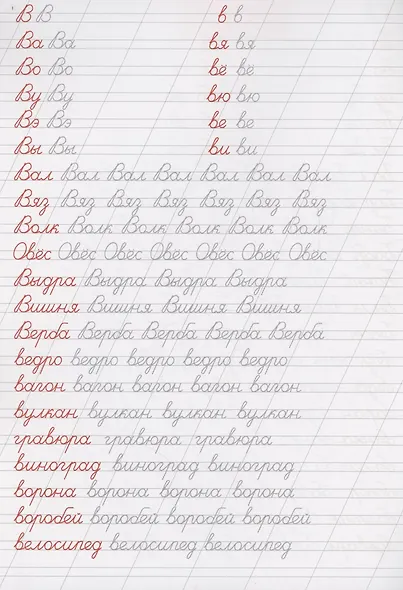 В В в в
Ва Ва вя вя
Во Во вё вё
Ву Ву вю вю
Вэ Вэ ве ве
Вы Вы ви ви
Вал Вал Вал Вал Вал Вал Вал
Вяз Вяз Вяз Вяз Вяз Вяз Вяз
Волк Волк Волк Волк Волк Волк
Овёс Овёс Овёс Овёс Овёс Овёс Овёс
Выдра Выдра Выдра Выдра
Вишня Вишня Вишня Вишня
Верба Верба Верба Верба Верба
ведро ведро ведро ведро ведро
вагон вагон вагон вагон вагон
вулкан вулкан вулкан вулкан
гравюра гравюра гравюра
виноград виноград виноград
ворона ворона ворона ворона
воробей воробей воробей воробей
велосипед велосипед велосипед